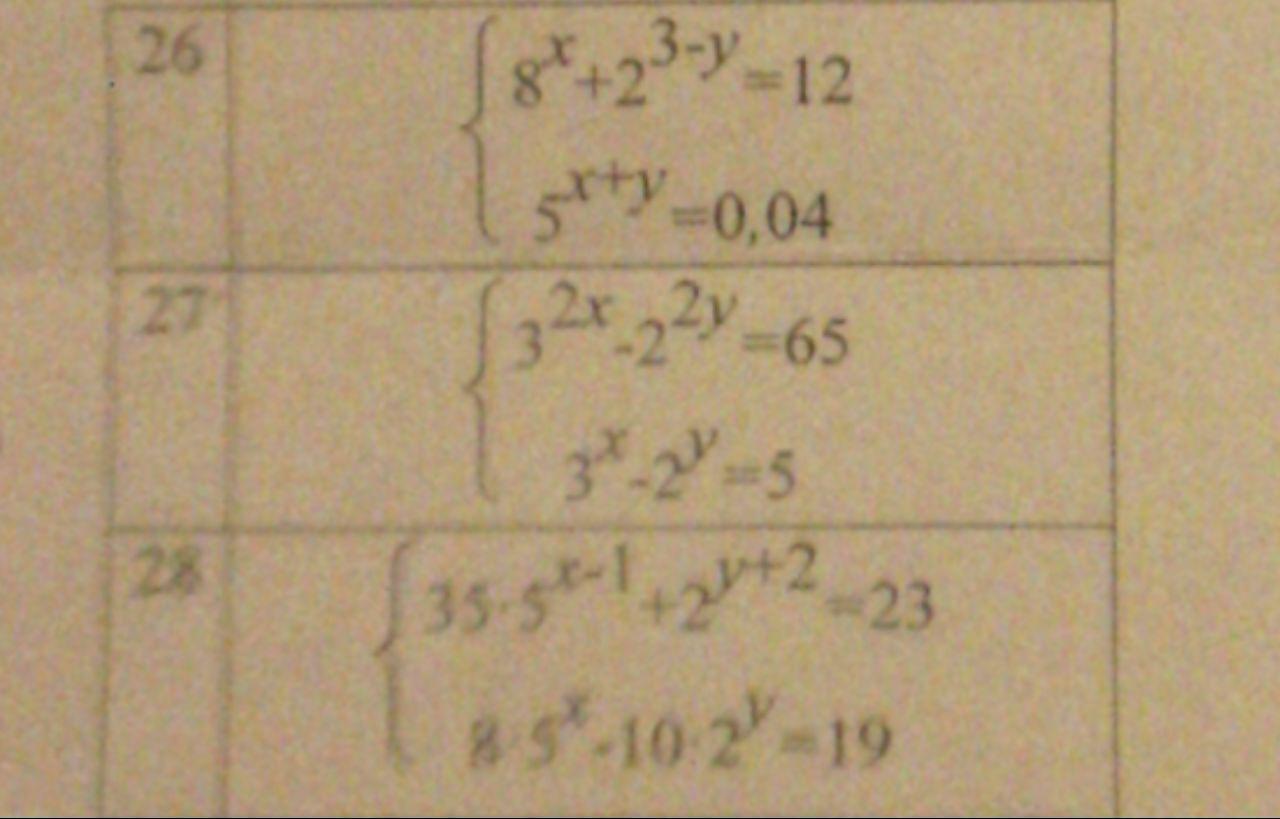 26
8^x+2^{3-y}=12
5^{x+y}=0,04
27
3^{2x}-2^{2y}=65
3^x-2^y=5
28
35·5^{x-1}+2^{y+2}=23
8·5^x-10·2^y=19